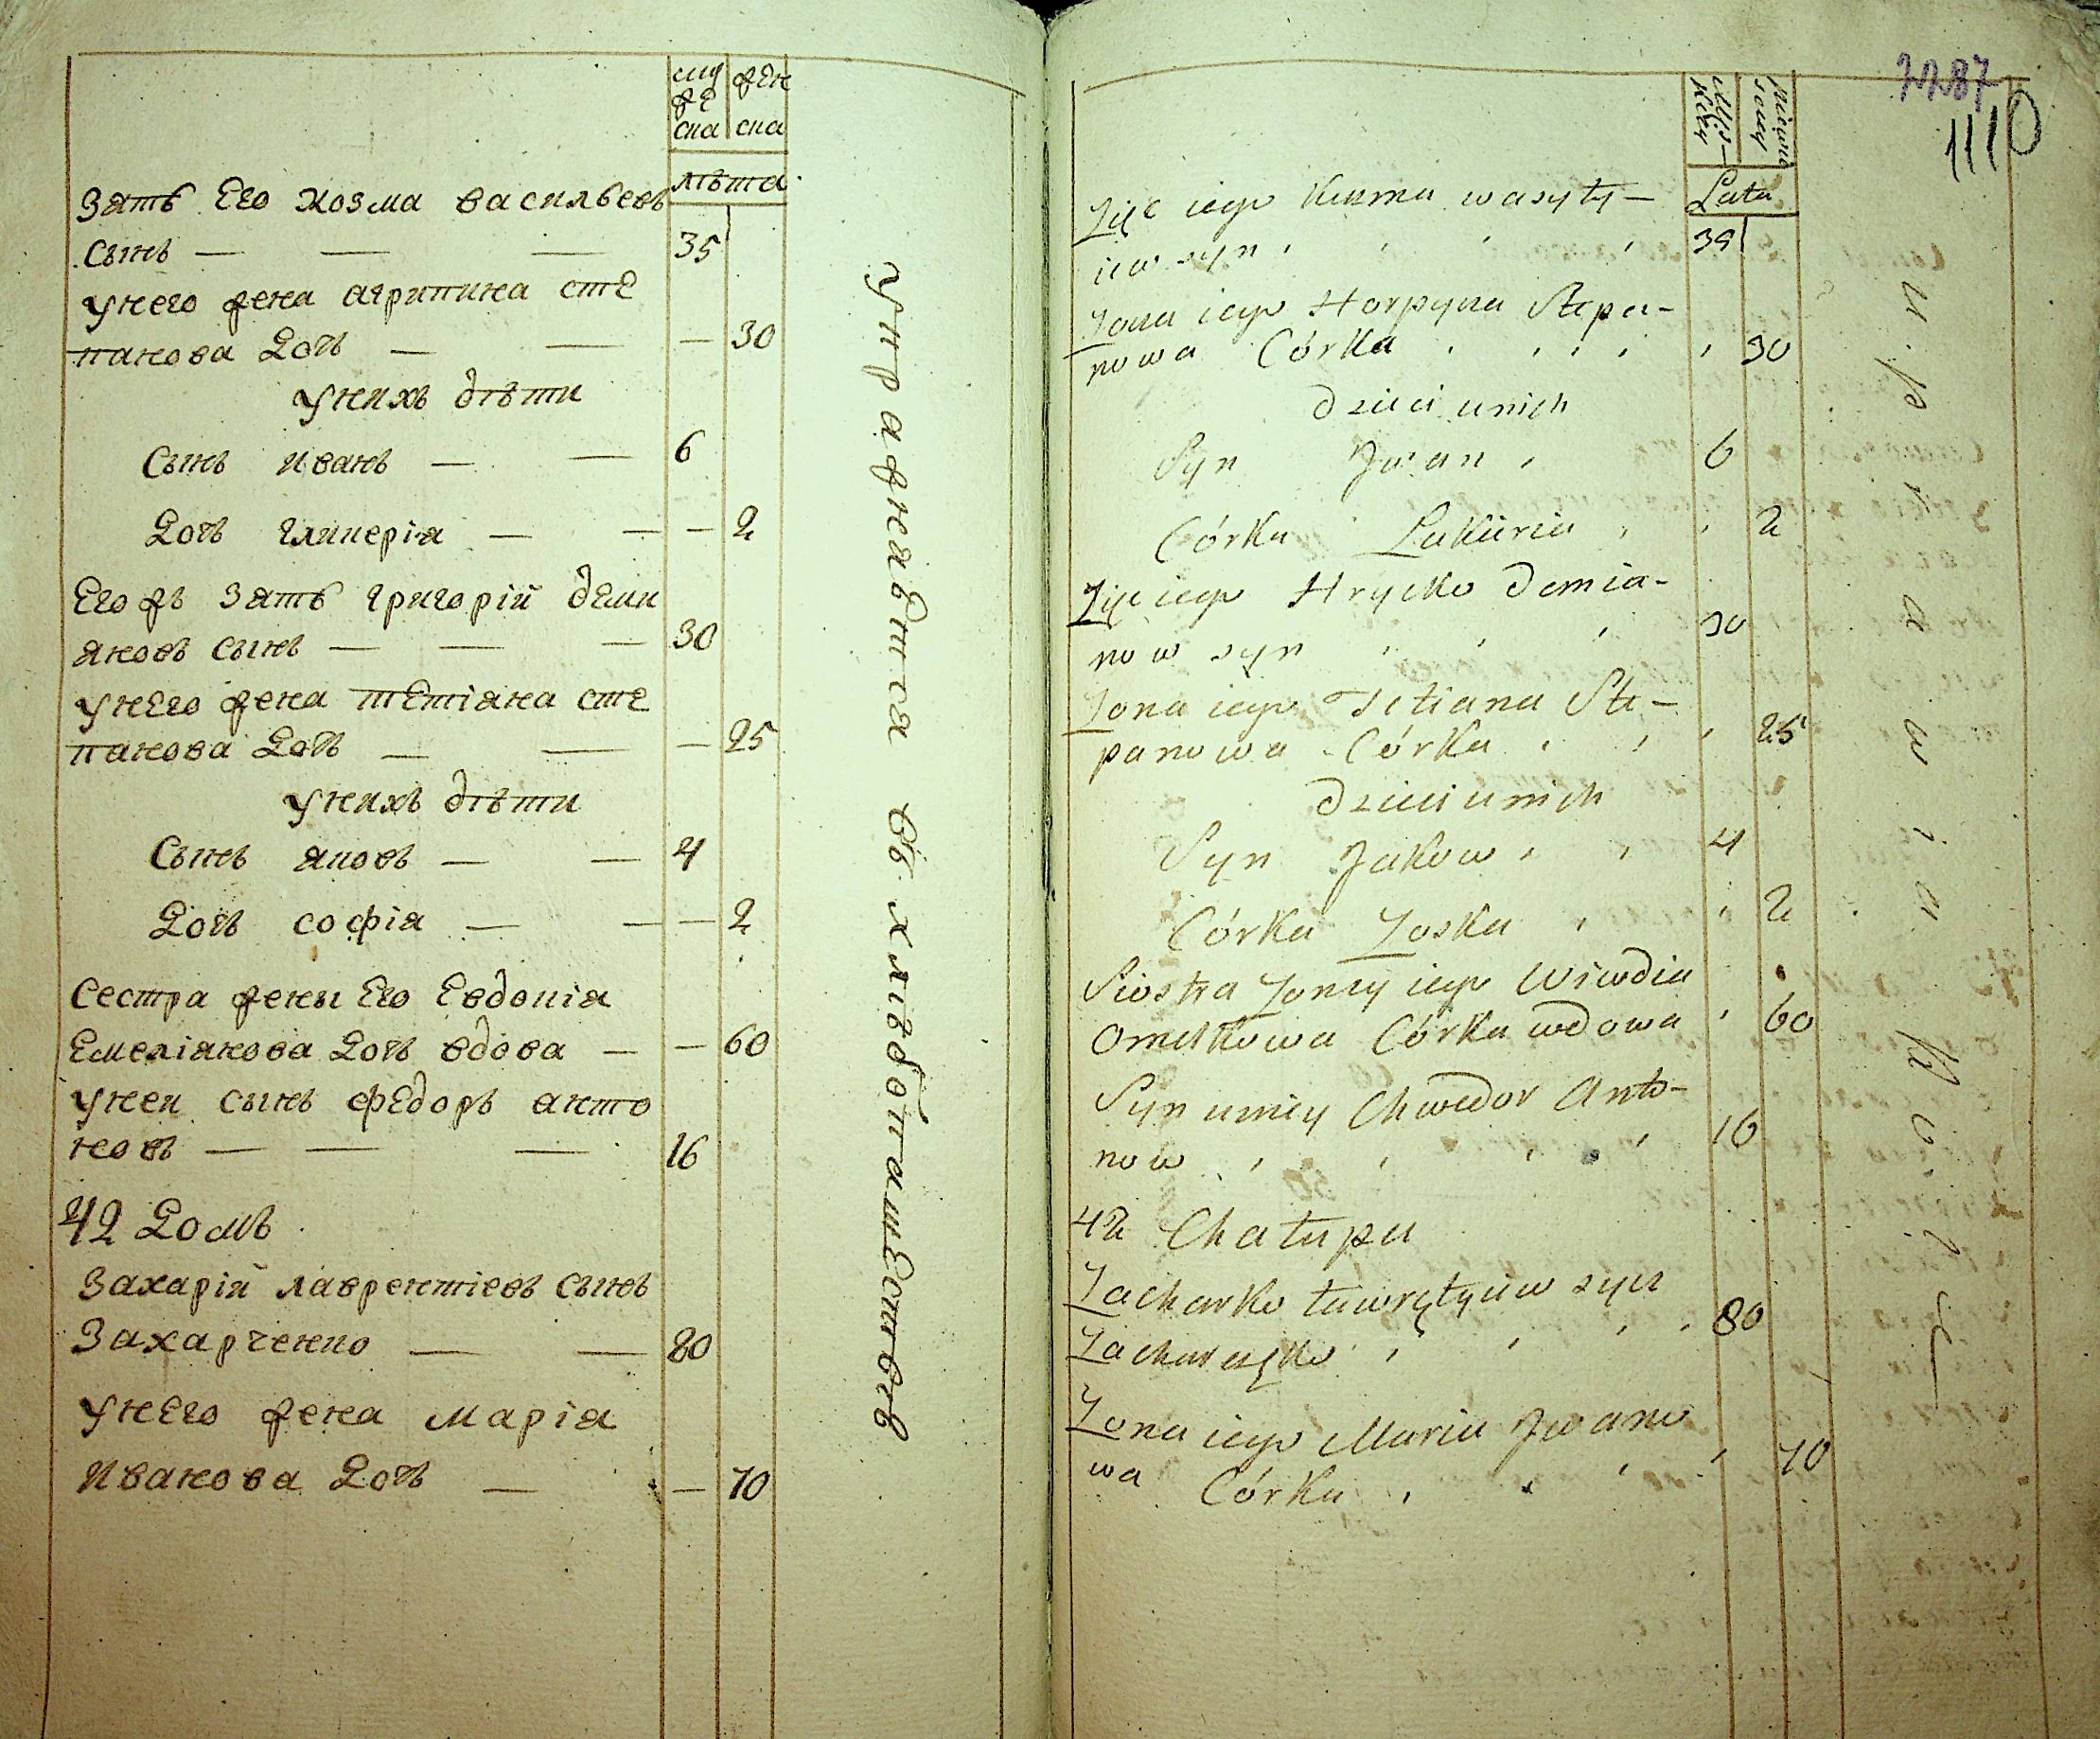 муж
же
ска
жен
ска
лѣта
Зять Его козма васильевъ
сынъ — — — 35
унего жена агрипина сте
панова Дочь — — — 30
унихъ дѣти
Сынъ иванъ — — 6
Дочь гликерія — — — 2
Егожъ Зять григорій деми
яновъ сынъ — — — 30
унего жена тетіяна сте
панова Дочь — — — 25
унихъ дѣти
Сынъ яковъ — — 4
Дочь софія — — — 2
Сестра жены Его Евдокія
Емеліянова Дочь вдова — — 60
унеи сынъ федоръ анто
новъ — — — 16
42 Домъ
Захарій лаврентіевъ сынъ
Захарченко — — 80
унего жена марія
иванова Дочь — — 70
упражняются въ хлѣбопашествѣ
2287
1110
Męz-
kiey
Lata
Zięć iego Kuzma wasyly-
iew syn 35
Zona iego Horpyna Stepa-
nowa Córka 30
Dzieci unich
Syn Jwan 6
Córka Lukiiria 2
Zięć iego Hrycko Demia-
now syn 30
Zona iego Tetiana Ste-
panowa Córka 25
Dzieci unich
Syn Jakow 4
Córka Zoska 2
Siostra Zoney iego Wiwdia
Omelkowa Córka wdowa 60
Syn uniey Chwedor Anto-
now 16
42 Chałupa
Zacharko ławrętyiiw syn
Zacharczęko 80
Zona iego Maria Jwano
wa Córka 70
uprawia Rolę